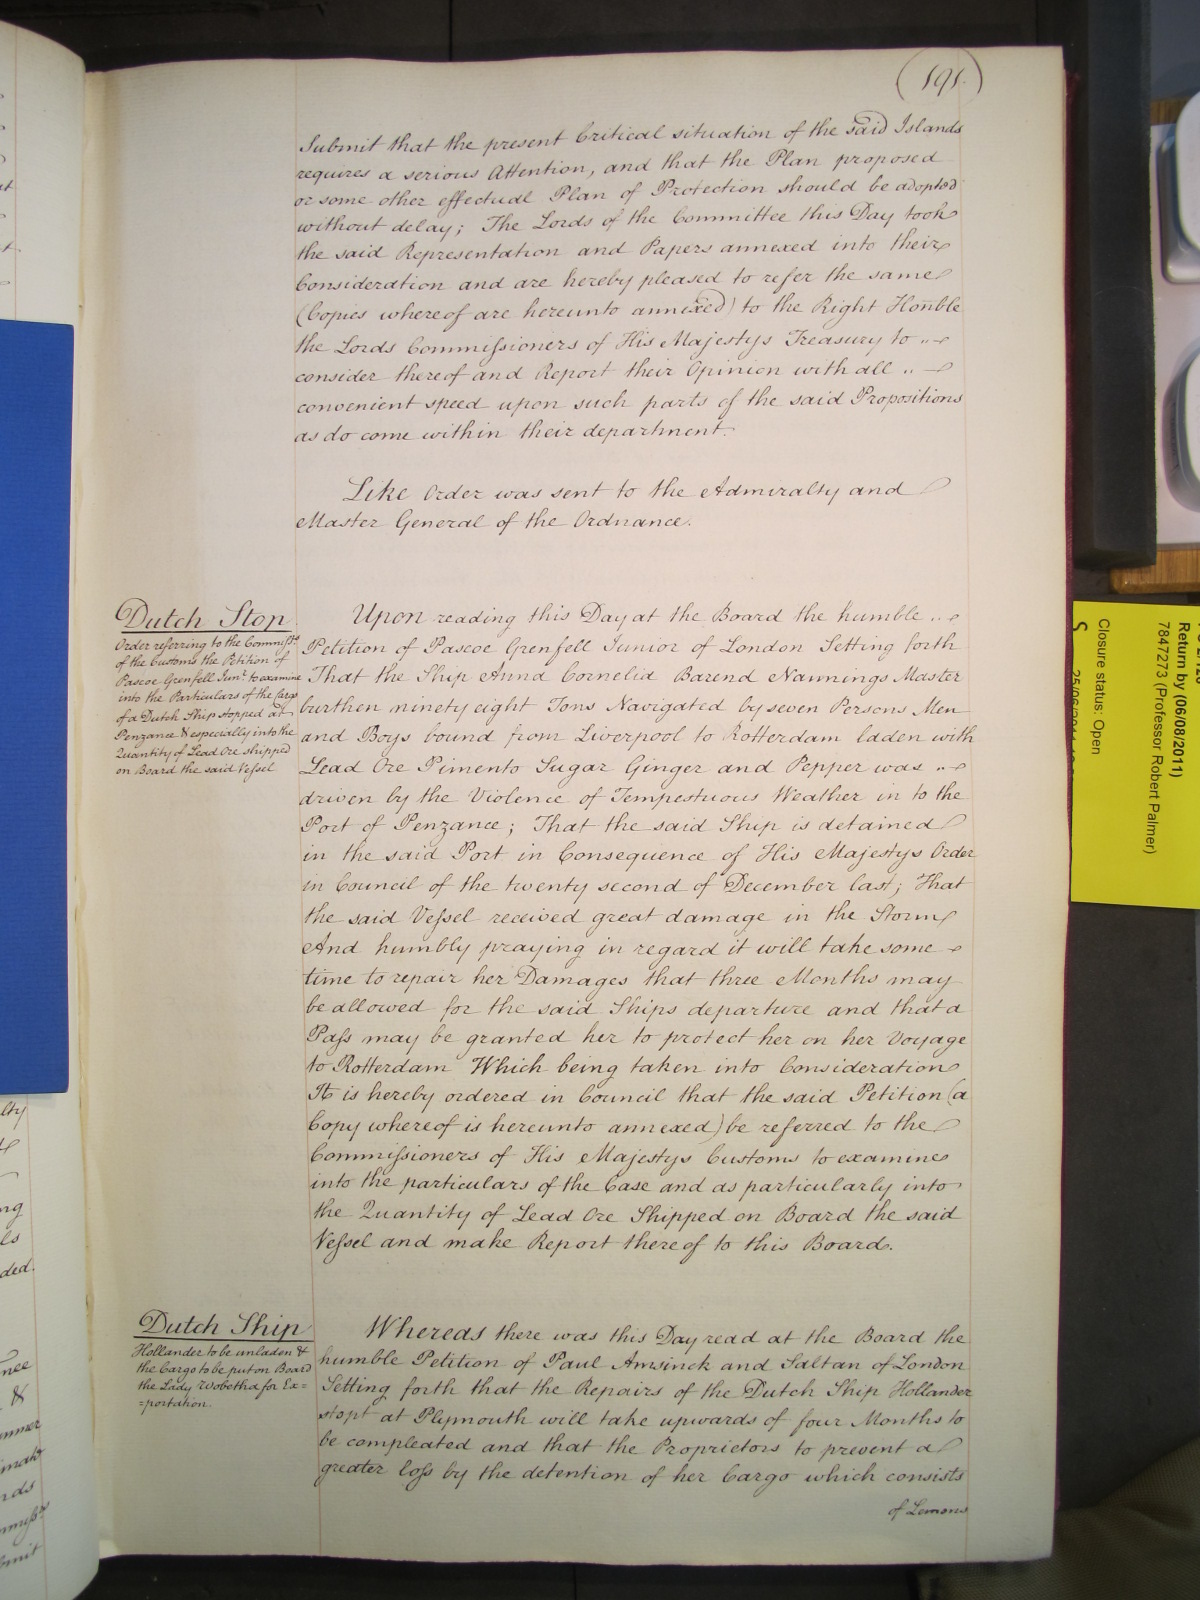 191.
Submit that the present Critical situation of the said Islands
requires a serious Attention, and that the Plan proposed
or some other effectual Plan of Protection should be adopted
without delay; The Lords of the Committee this Day took
the said Representation and Papers annexed into their
Consideration and are hereby pleased to refer the same
(Copies whereof are hereunto annexed) to the Right Honble
the Lords Commissioners of His Majestys Treasury to
consider thereof and Report their Opinion with all
convenient speed upon such parts of the said Propositions
as do come within their department.
Like Order was sent to the Admiralty and
Master General of the Ordnance.
Dutch Stop
Order referring to the Commissrs
of the Customs the Petition of
Pascoe Grenfell Junr. to examine
into the Particulars of the Cargo
of a Dutch Ship stopped at
Penzance & especially into the
Quantity of Lead Ore shipped
on Board the said Vessel
Upon reading this Day at the Board the humble
Petition of Pascoe Grenfell Junior of London Setting forth
That the Ship Anna Cornelia Barend Nannings Master
burthen ninety eight Tons Navigated by seven Persons Men
and Boys bound from Liverpool to Rotterdam laden with
Lead Ore Pimento Sugar Ginger and Pepper was
driven by the Violence of Tempestuous Weather in to the
Port of Penzance; That the said Ship is detained
in the said Port in Consequence of His Majestys Order
in Council of the twenty second of December last; That
the said Vessel received great damage in the Storm
And humbly praying in regard it will take some
time to repair her Damages that three Months may
be allowed for the said Ships departure and that a
Pass may be granted her to protect her on her Voyage
to Rotterdam Which being taken into Consideration
It is hereby ordered in Council that the said Petition (a
Copy whereof is hereunto annexed) be referred to the
Commissioners of His Majestys Customs to examine
into the particulars of the Case and as particularly into
the Quantity of Lead Ore Shipped on Board the said
Vessel and make Report thereof to this Board.
Dutch Ship
Hollander to be unladen &
the Cargo to be put on Board
the Lady Wobetha for Ex=
=portation.
Whereas there was this Day read at the Board the
humble Petition of Paul Amsinck and Saltan of London
Setting forth that the Repairs of the Dutch Ship Hollander
stopt at Plymouth will take upwards of four Months to
be compleated and that the Proprietors to prevent a
greater loss by the detention of her Cargo which consists
of Lemons
Return by (06/08/2011)
7847273 (Professor Robert Palmer)
Closure status: Open
S
lty
ng
ls
ded.
&
rds